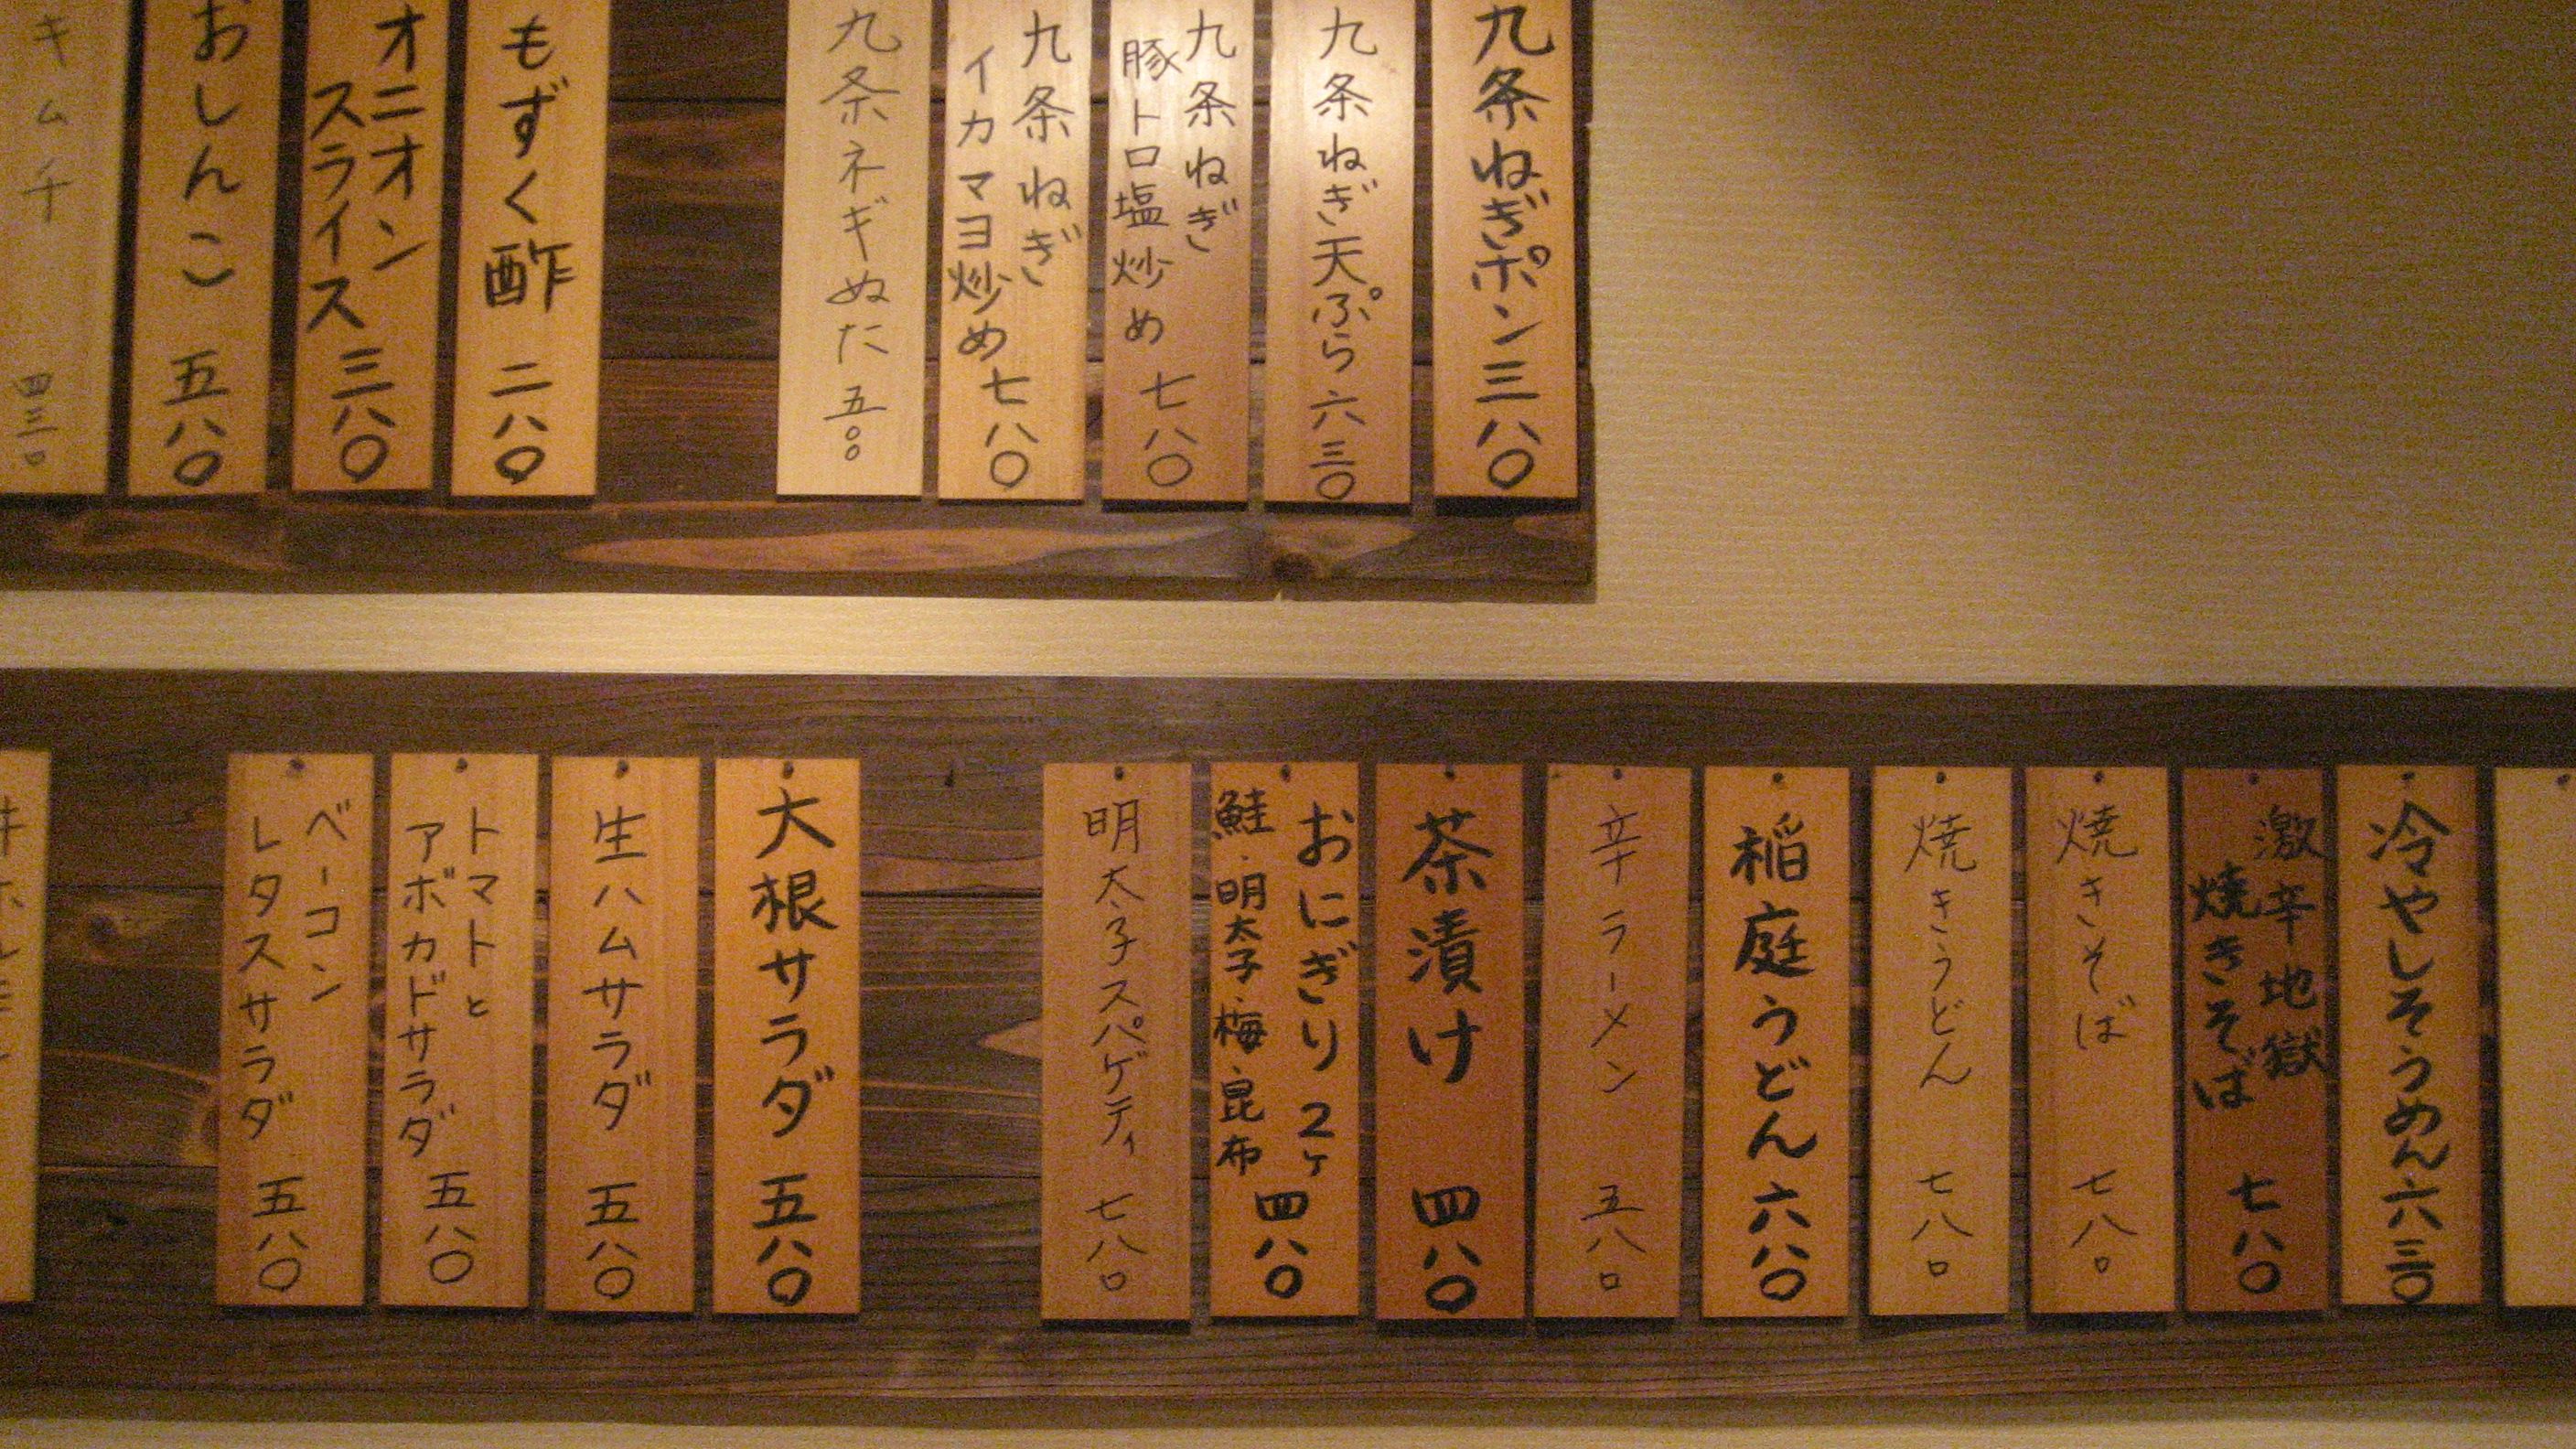 九条ねぎポン三八〇
九条ねぎ天ぷら六三〇
九条ねぎ
豚トロ塩炒め 七八〇
九条ねぎ
イカマヨ炒め七八〇
九条ネギぬた 五〇〇
もずく酢 二八〇
オニオン
スライス 三八〇
おしんこ 五八〇
キムチ 四三〇
冷やしそうめん六三〇
激辛地獄
焼きそば 七八〇
焼きそば 七八〇
焼きうどん 七八〇
稲庭うどん六八〇
辛ラーメン 五八〇
茶漬け 四八〇
おにぎり 2ヶ
鮭・明太子・梅・昆布
四八〇
明太子スパゲティ 七八〇
大根サラダ 五八〇
生ハムサラダ 五八〇
トマトと
アボカドサラダ 五八〇
ベーコン
レタスサラダ 五八〇